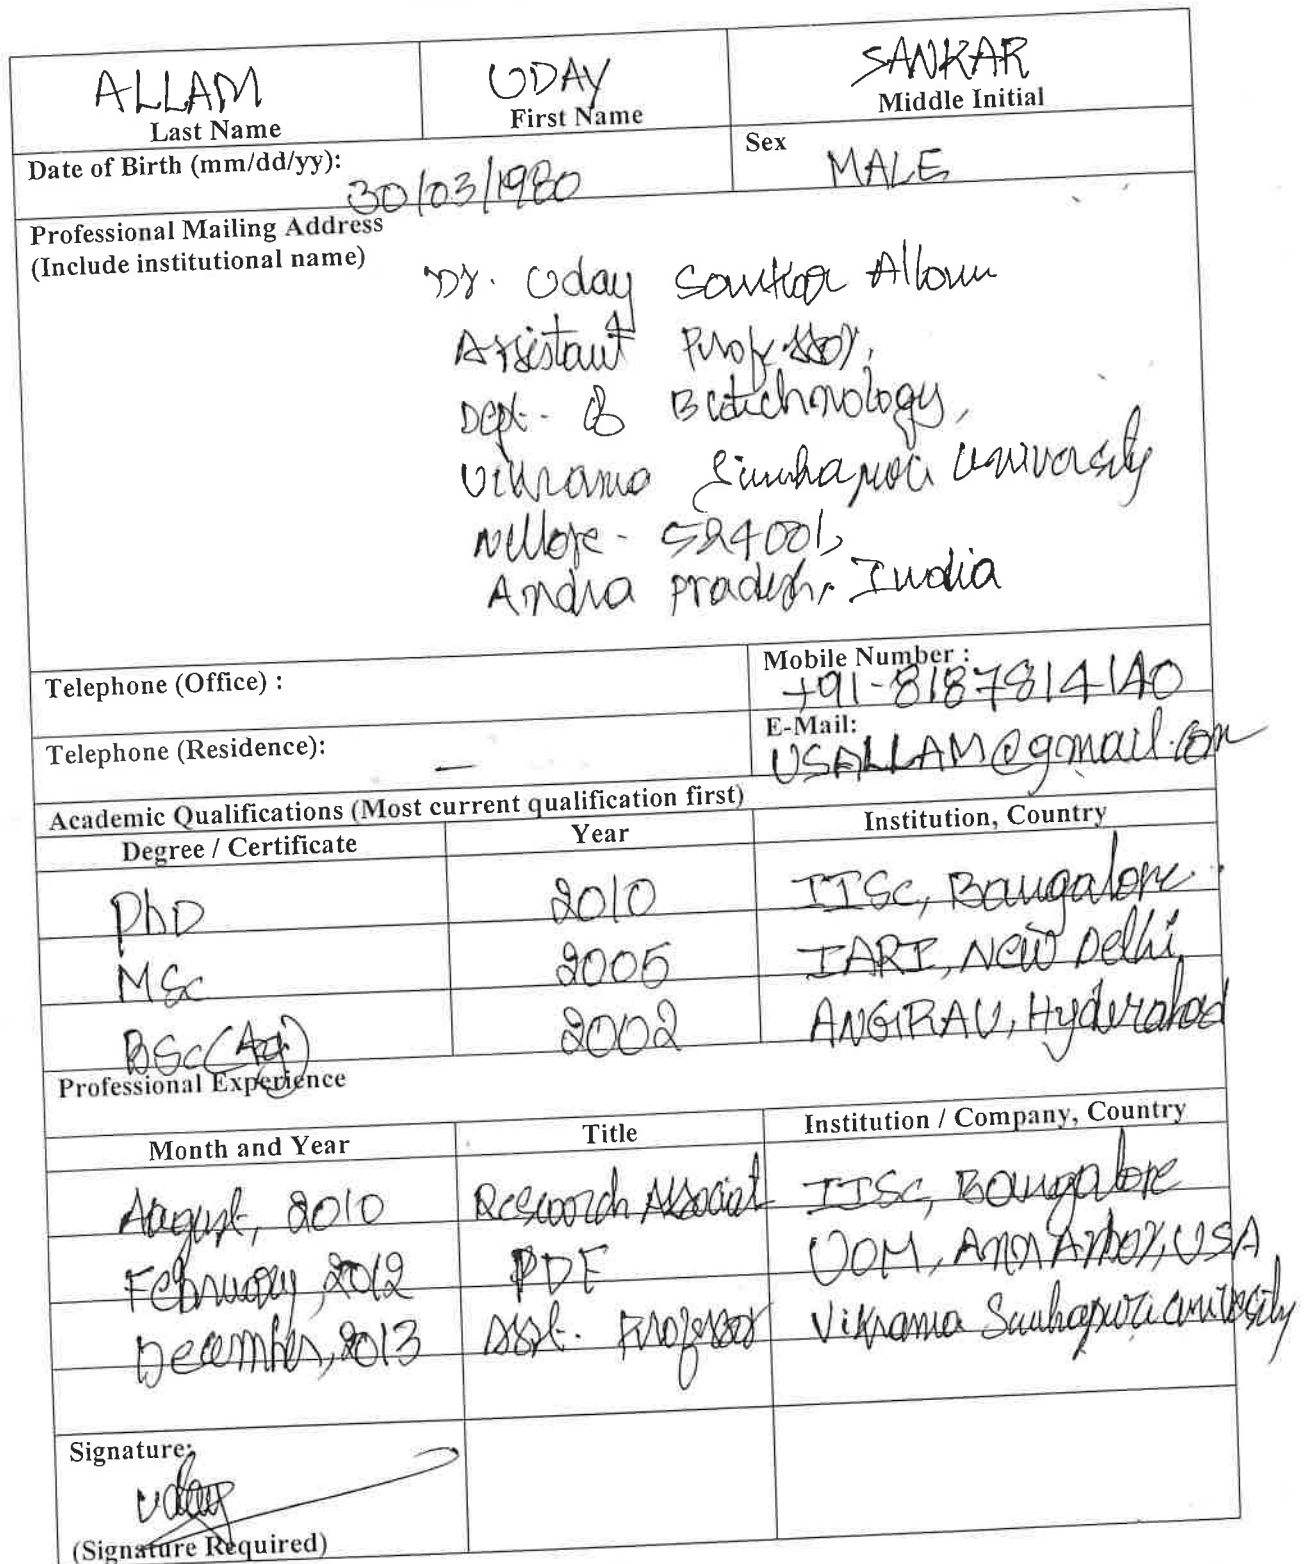 ALLAM UDAY SANKAR
Last Name First Name Middle Initial
Date of Birth (mm/dd/yy): 30/03/1980 Sex MALE
Professional Mailing Address
(Include institutional name)
Dr. Uday Sankar Allam
Assistant Professor,
Dept. of Biotechnology,
Vikrama Simhapuri University
Nellore - 524001,
Andra pradesh, India
Telephone (Office) : Mobile Number : +91-8187814140
Telephone (Residence): — E-Mail: USALLAM@gmail.com
Academic Qualifications (Most current qualification first)
Degree / Certificate Year Institution, Country
PhD 2010 IISc, Bangalore
MSc 2005 IARI, New Delhi
BSc(Ag) 2002 ANGRAU, Hyderabad
Professional Experience
Month and Year Title Institution / Company, Country
August, 2010 Research Associat IISc, Bangalore
February, 2012 PDF UOM, Ann Arbor, USA
December, 2013 Asst. Professor Vikrama Simhapuri University
Signature:
Uday
(Signature Required)